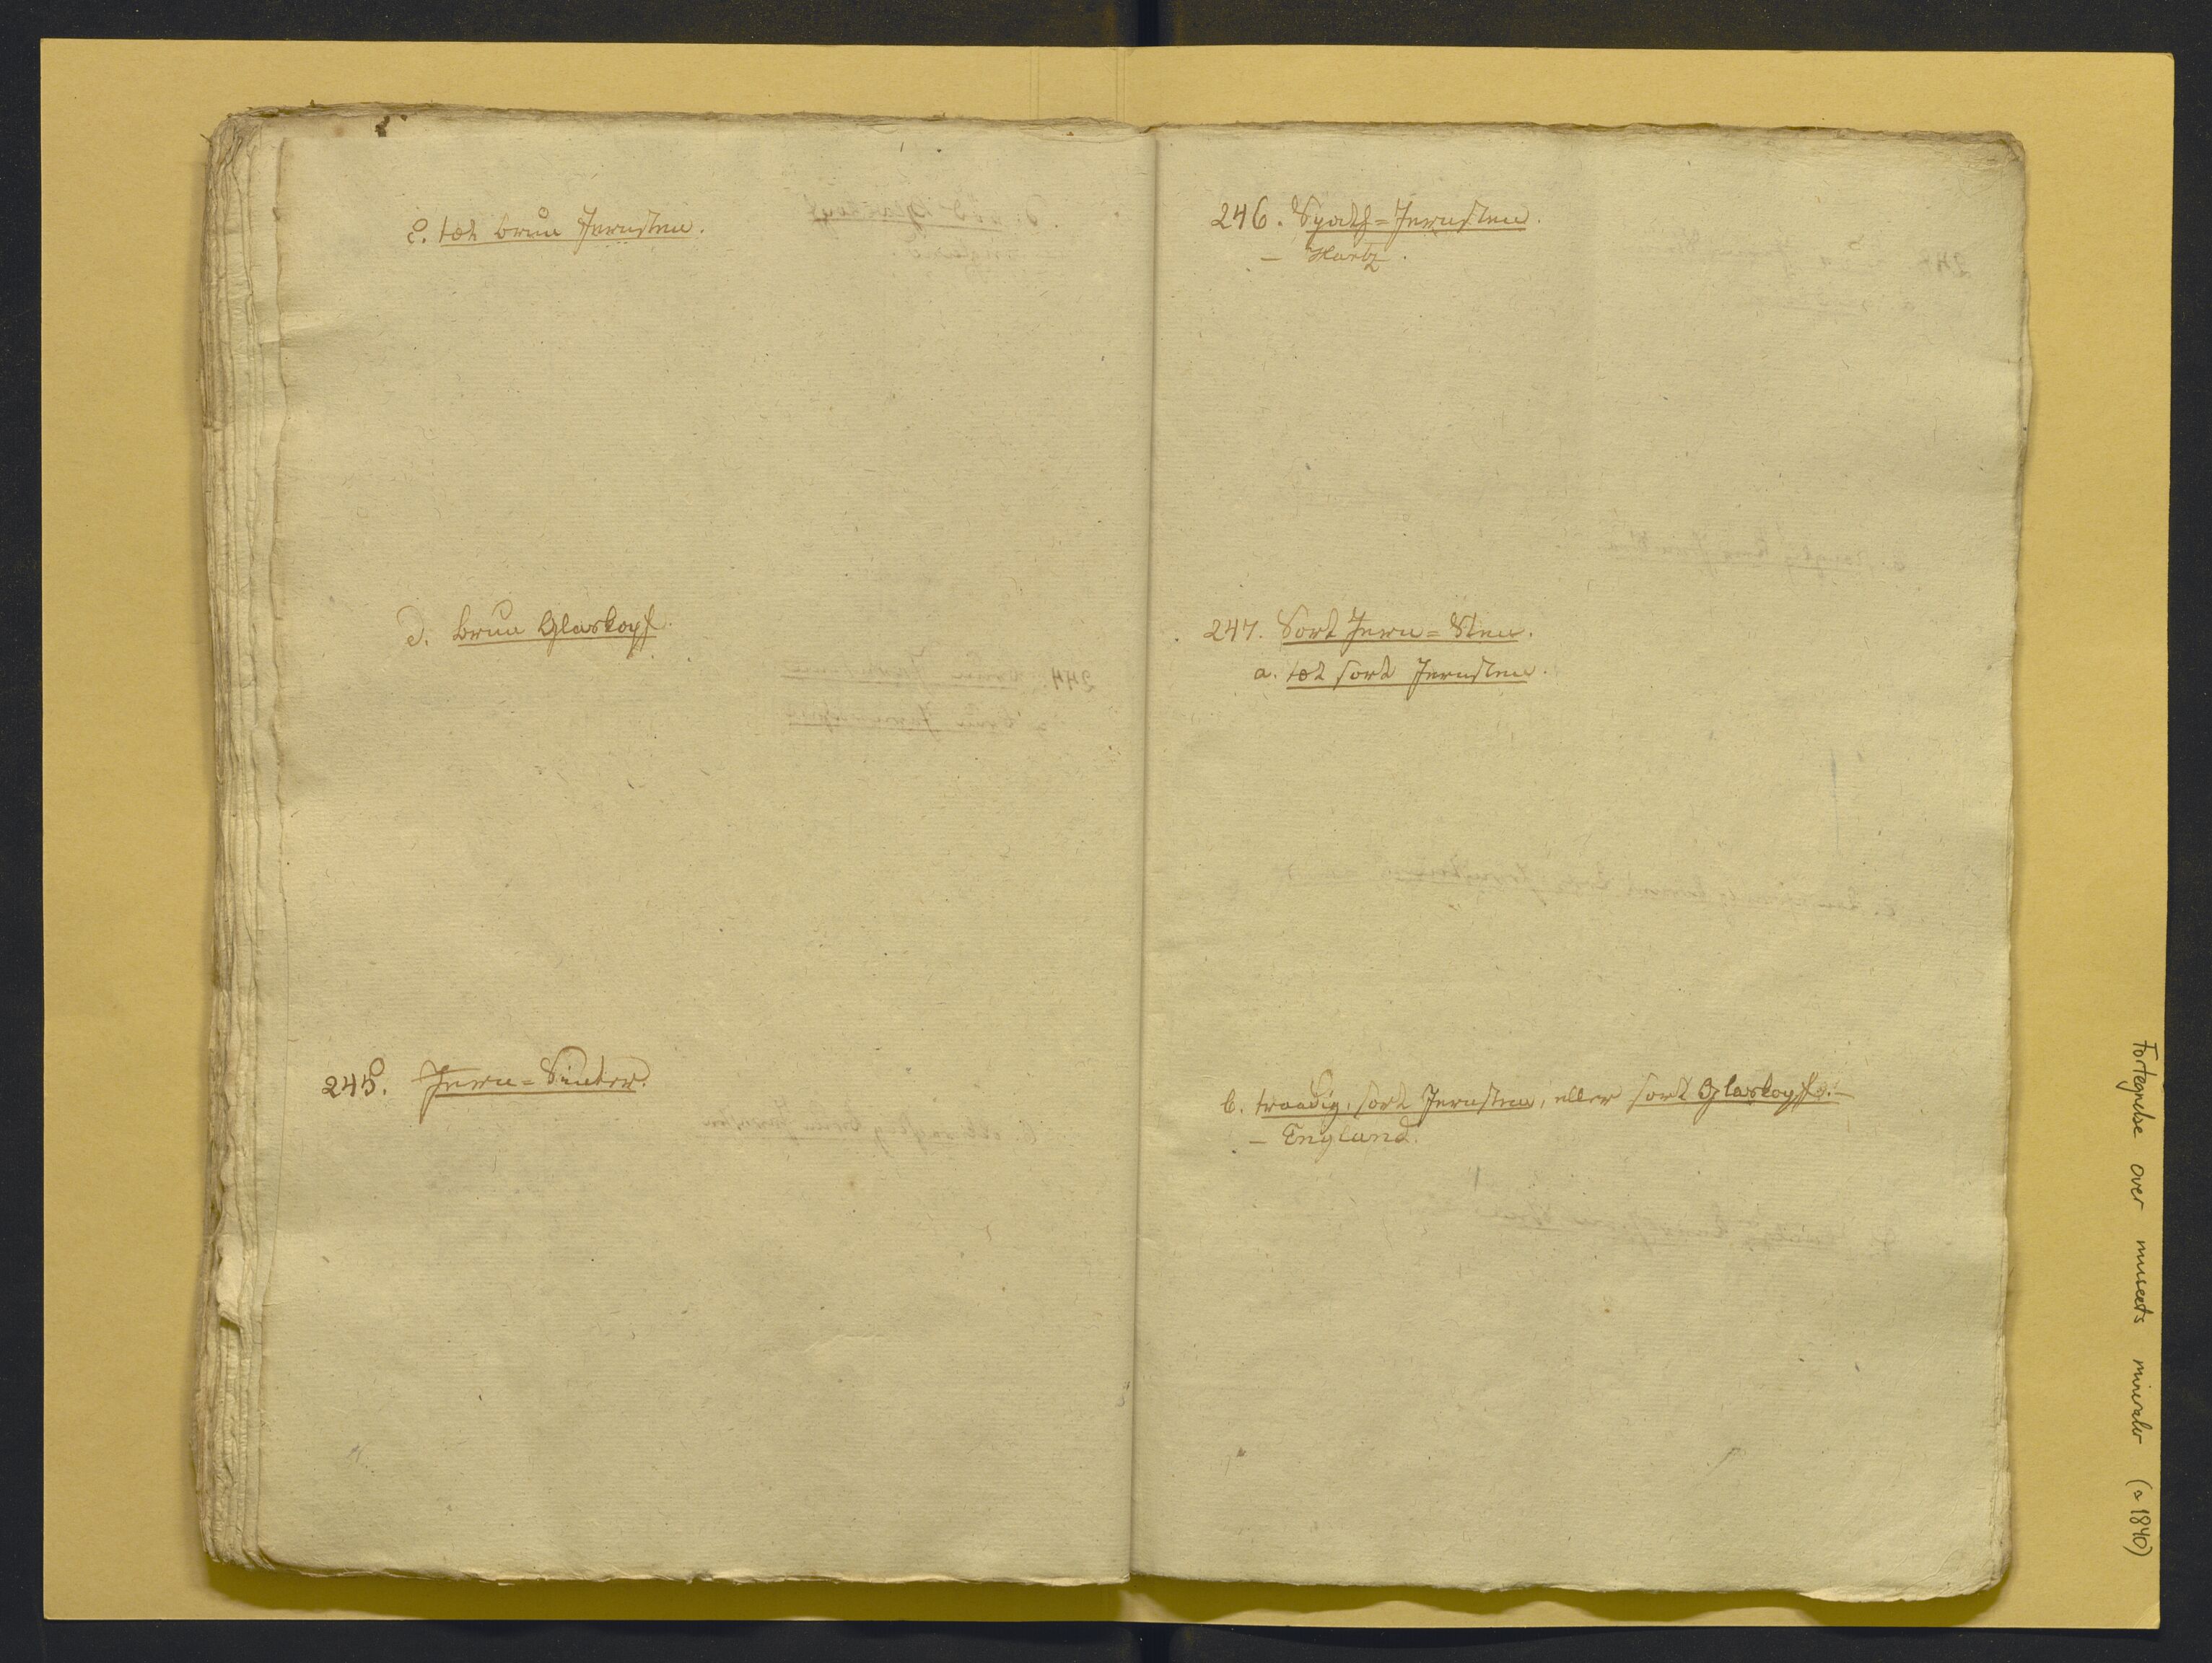 c. tæt brun Jernsten.
d. brun Glaskopf.
245. Jern=Sinter.
246. Spath=Jernsten.
– Hartz.
247. Sort Jern=Sten.
a. tæt sort Jernsten.
b. traadig, sort Jernsten, eller sort Glaskopf.
– England.
Fortegnelse over museets mineraler (a 1840)